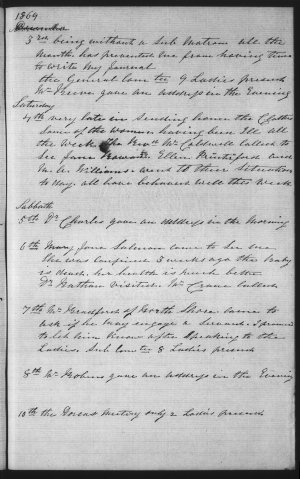 1869
December
3rd being without a Sub Matron all the
month has prevented me from having time
to write My Journal
the General Comtee 9 Ladies present
Mr Reeve gave an address in the Evening
Saturday
4th very late in Sending home the Clothes
Some of the women having been Ill all
the week The Revd Mr Caldwell Called to
See Jane Ellen and
M. A. Williams went to their Situations
to day. all have behaved well this week
Sabbath
5th Dr Charles gave an address in the Morning
6th Mary Jane Salmon came to See me
She was Confined 3 weeks ago the baby
is dead, her health is much better
Dr Nathan Visited. Mrs Crane Called
7th Mr of North Shore came to
ask if he may engage a Servant. I promised
to let him know after Speaking to the
Ladies. Sub Comtee 8 Ladies present
8th Mr gave an address in the Evening
10th the Meeting only 2 Ladies present